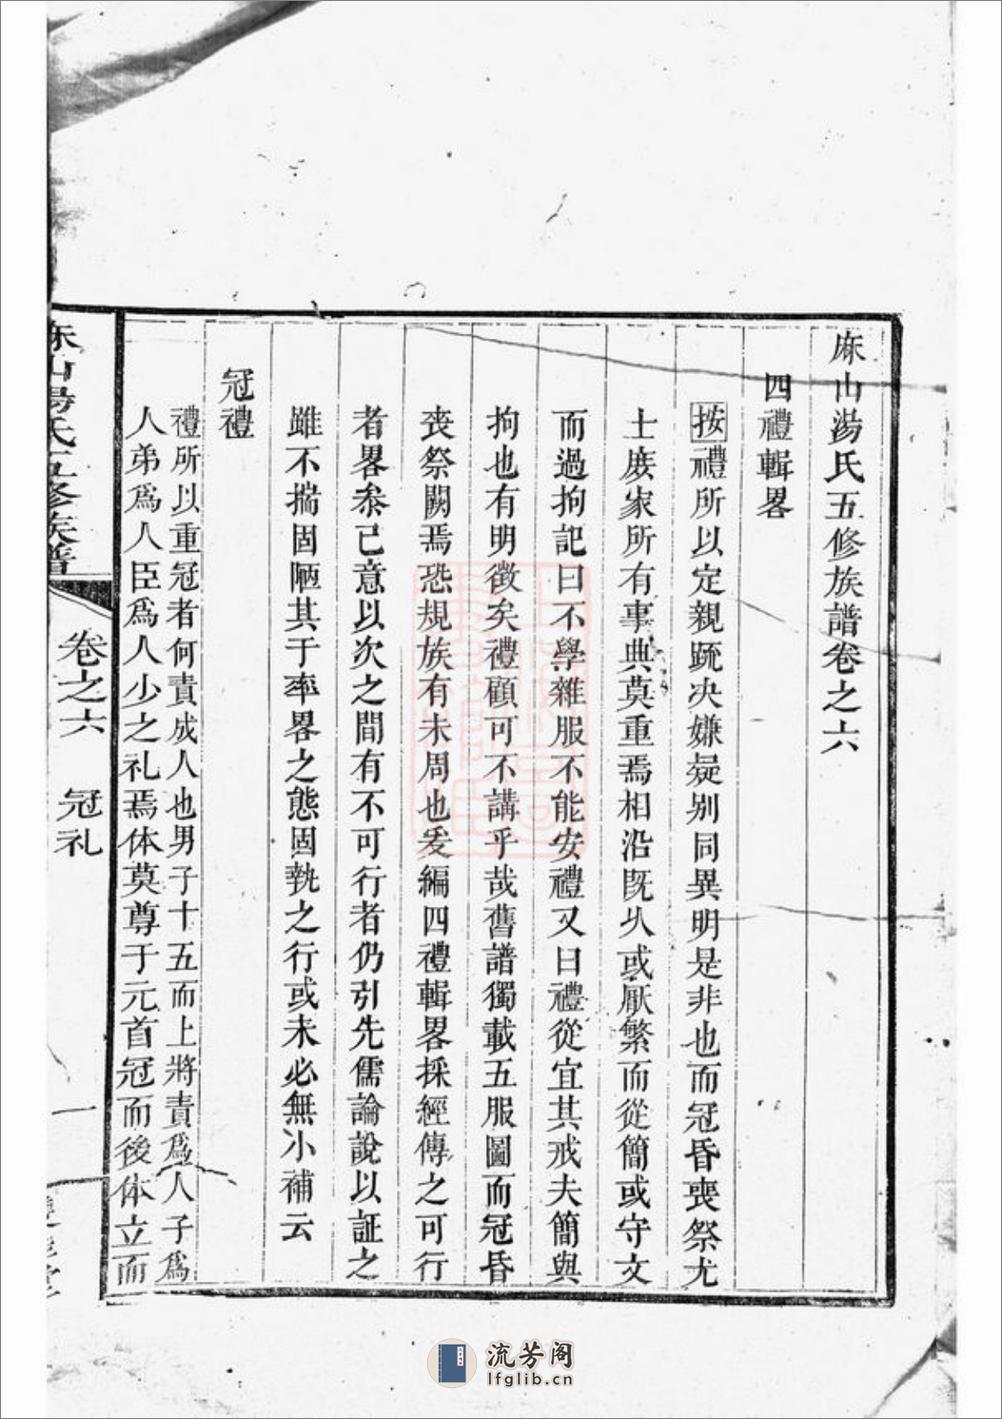 麻山湯氏五修族譜卷之六
四禮輯畧
按禮所以定親疏决嫌疑别同異明是非也而冠昏喪祭尤
士庻家所有事典莫重焉相沿既乆或厭繁而從簡或守文
而過拘記曰不學雜服不能安禮又曰禮從宜其戒夫簡與
拘也有明徵矣禮顧可不講乎哉舊譜獨載五服圖而冠昏
喪祭闕焉恐規族有未周也爰編四禮輯畧採經傳之可行
者畧叅己意以次之間有不可行者仍引先儒論說以証之
雖不揣固陋其于率畧之態固執之行或未必無小補云
冠禮
禮所以重冠者何責成人也男子十五而上將責爲人子爲
人弟爲人臣爲人少之礼焉体莫尊于元首冠而後体立而
麻山湯氏五修族譜
卷之六 冠礼
一
流芳阁
lfglib.cn